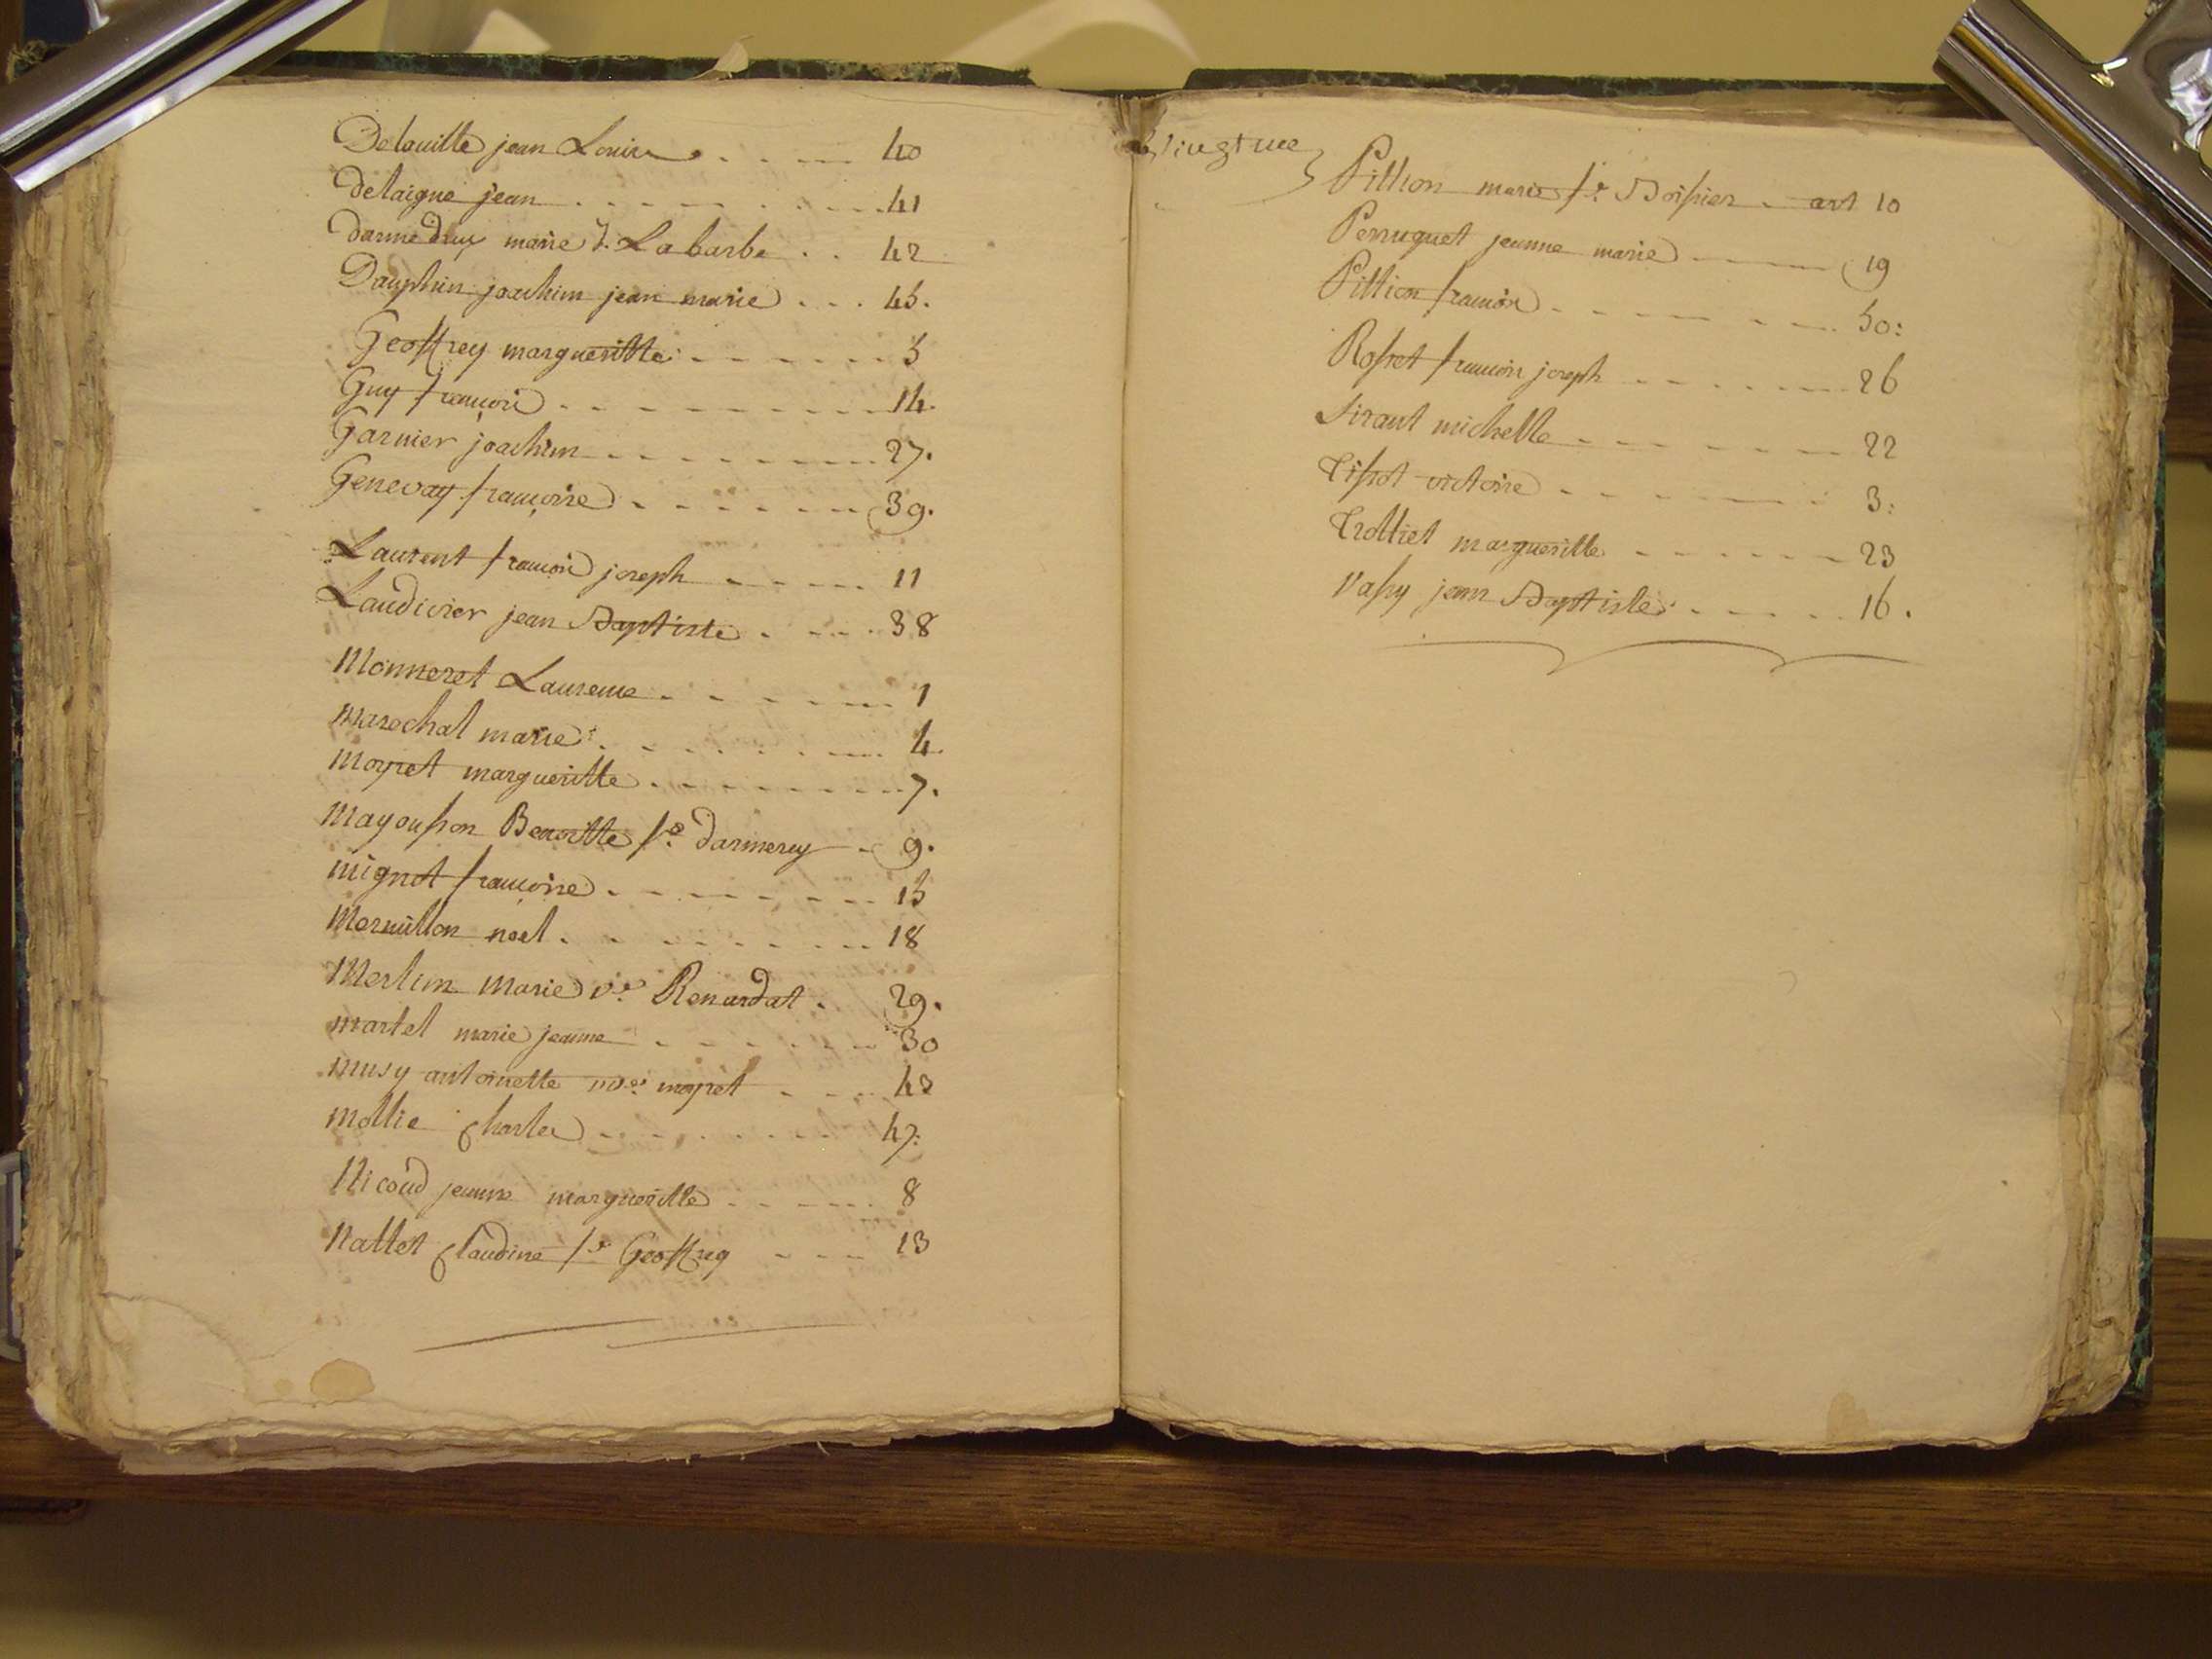 Delouille jean Louis . . . 40
delaigue jean . . . . . . . . 41
darmedruy marie f. Labarbe . . 42
Dauphin joachim jean marie . . . 45.
Geoffrey margueritte . . . . . . 5
Guy françois . . . . . . . . . 14.
Garnier joachim . . . . . . . . 27.
Genevay françoise . . . . . . . 39.
Laurent françois joseph . . . . . 11
Laudivier jean Baptiste . . . . 38
Monneret Laurence . . . . . . 1
marechal marie . . . . . . . . 4.
moyret margueritte . . . . . . . . 7.
Mayousson Benoitte fe. darmerey - 9.
mignot françoise . . . . . . . . 15
Mermillon noel . . . . . . . . 18
Merlim Marie ve. Renardat . 29.
martel marie jeanne . . . . . . 30
musy antoinette ve. moyret . . . 43
mollie Charles . . . . . . . 47.
Nicoud jeanne margueritte . . . . . 8
Nallet Claudine fe Geoffrey . . . 13
Pillion marie fe. Boissier . art 10
Perruquet jeanne marie 19
Pillion françois . . . . . . . 50:
Rosset françois joseph . . . . . . 26
Sirant michelle . . . . . . 22
Tissot victoire . . . . . . 3:
Trolliet margueritte . . . . . . 23
Vassy jean Baptiste . . . . . . 16.